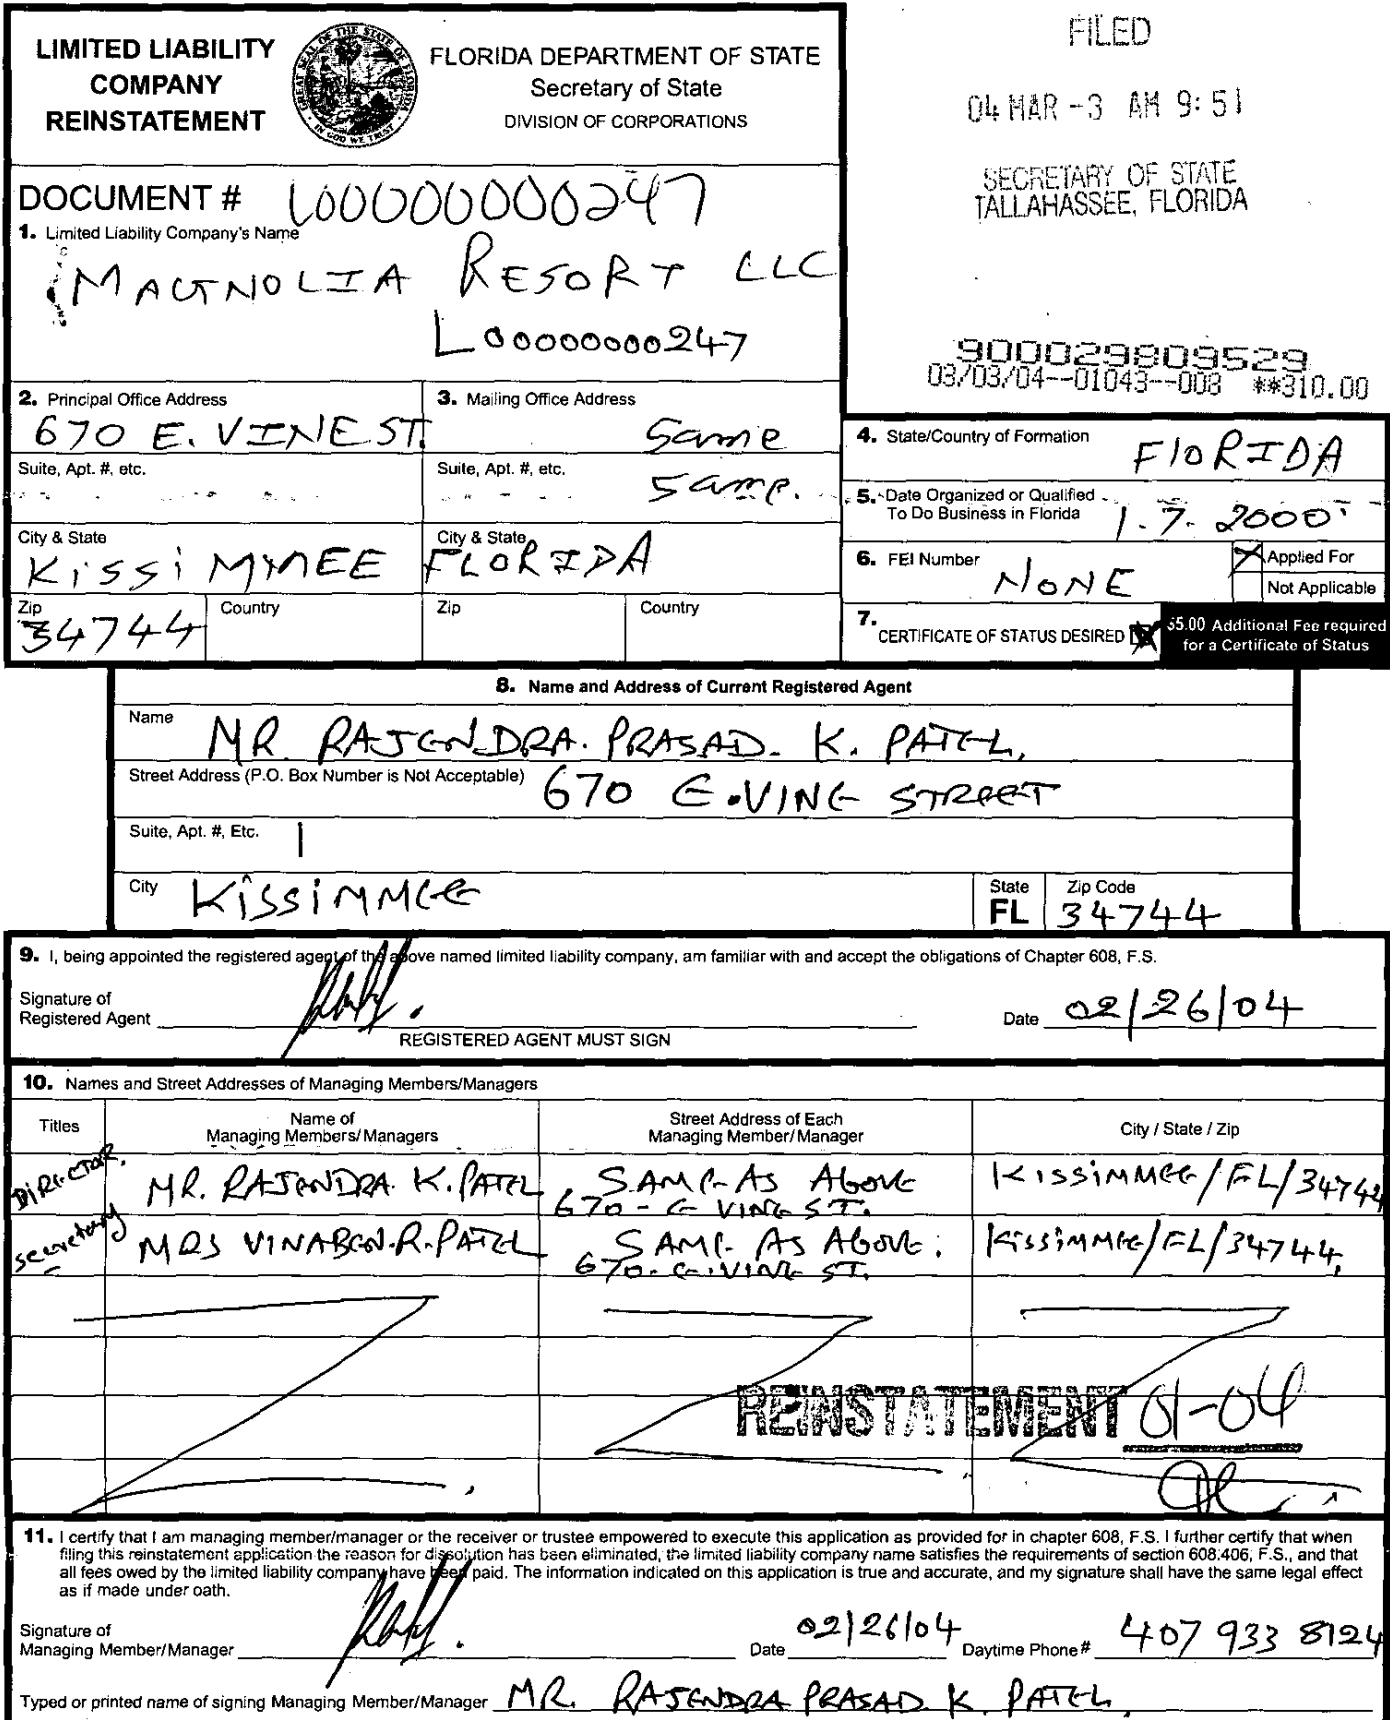 LIMITED LIABILITY
COMPANY
REINSTATEMENT
FLORIDA DEPARTMENT OF STATE
Secretary of State
DIVISION OF CORPORATIONS
FILED
04 MAR -3 AM 9:51
SECRETARY OF STATE
TALLAHASSEE, FLORIDA
DOCUMENT # L00000000247
1. Limited Liability Company's Name
MAGNOLIA RESORT LLC
L00000000247
900029809529
03/03/04--01043--003 **310.00
2. Principal Office Address
670 E. VINE ST.
3. Mailing Office Address
Same
Suite, Apt. #, etc.
Suite, Apt. #, etc.
Same.
City & State
KissiMMEE
City & State
FLORIDA
Zip
34744
Country
Zip
Country
4. State/Country of Formation
FlORIDA
5. Date Organized or Qualified
To Do Business in Florida
1.7.2000
6. FEI Number
NONE
X Applied For
Not Applicable
7. CERTIFICATE OF STATUS DESIRED X
$5.00 Additional Fee required
for a Certificate of Status
8. Name and Address of Current Registered Agent
Name MR RAJENDRA. PRASAD. K. PATEL,
Street Address (P.O. Box Number is Not Acceptable) 670 E.VINE STREET
Suite, Apt. #, Etc. |
City KissiMMEE
State
FL
Zip Code
34744
9. I, being appointed the registered agent of the above named limited liability company, am familiar with and accept the obligations of Chapter 608, F.S.
Signature of
Registered Agent
REGISTERED AGENT MUST SIGN
Date 02/26/04
10. Names and Street Addresses of Managing Members/Managers
Titles
Name of
Managing Members/Managers
Street Address of Each
Managing Member/Manager
City / State / Zip
DIRECTOR.
MR. RAJENDRA. K. PATEL
SAME AS ABOVE
670 - E VINE ST.
KissiMMEE/FL/34744
secretary
MRS VINABEN.R.PATEL
SAME AS ABOVE.
670-E.VINE ST.
KissiMMEE/FL/34744,
REINSTATEMENT 01-04
11. I certify that I am managing member/manager or the receiver or trustee empowered to execute this application as provided for in chapter 608, F.S. I further certify that when
filing this reinstatement application the reason for dissolution has been eliminated, the limited liability company name satisfies the requirements of section 608.406, F.S., and that
all fees owed by the limited liability company have been paid. The information indicated on this application is true and accurate, and my signature shall have the same legal effect
as if made under oath.
Signature of
Managing Member/Manager
Date 02/26/04
Daytime Phone # 407 933 8124
Typed or printed name of signing Managing Member/Manager MR. RAJENDRA PRASAD K. PATEL,